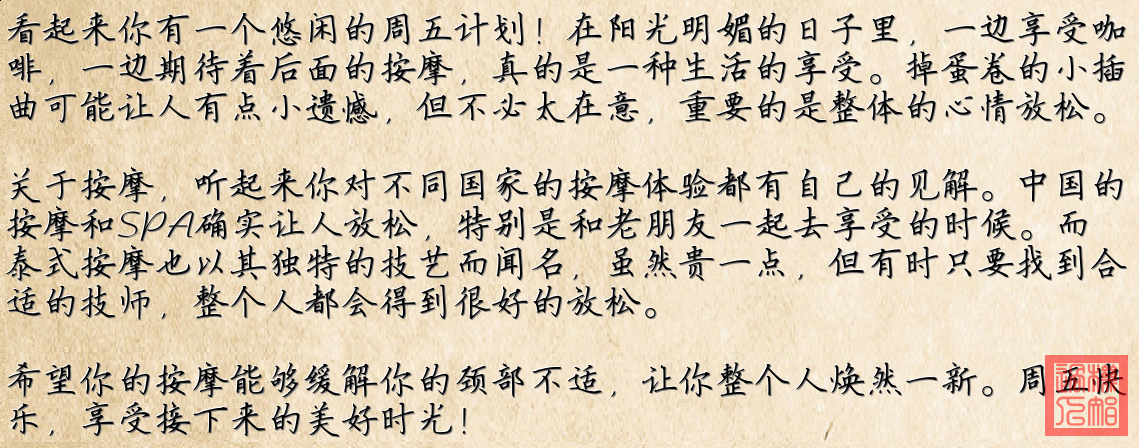 看起来你有一个悠闲的周五计划！在阳光明媚的日子里，一边享受咖
啡，一边期待着后面的按摩，真的是一种生活的享受。掉蛋卷的小插
曲可能让人有点小遗憾，但不必太在意，重要的是整体的心情放松。
关于按摩，听起来你对不同国家的按摩体验都有自己的见解。中国的
按摩和SPA确实让人放松，特别是和老朋友一起去享受的时候。而
泰式按摩也以其独特的技艺而闻名，虽然贵一点，但有时只要找到合
适的技师，整个人都会得到很好的放松。
希望你的按摩能够缓解你的颈部不适，让你整个人焕然一新。周五快
乐，享受接下来的美好时光！